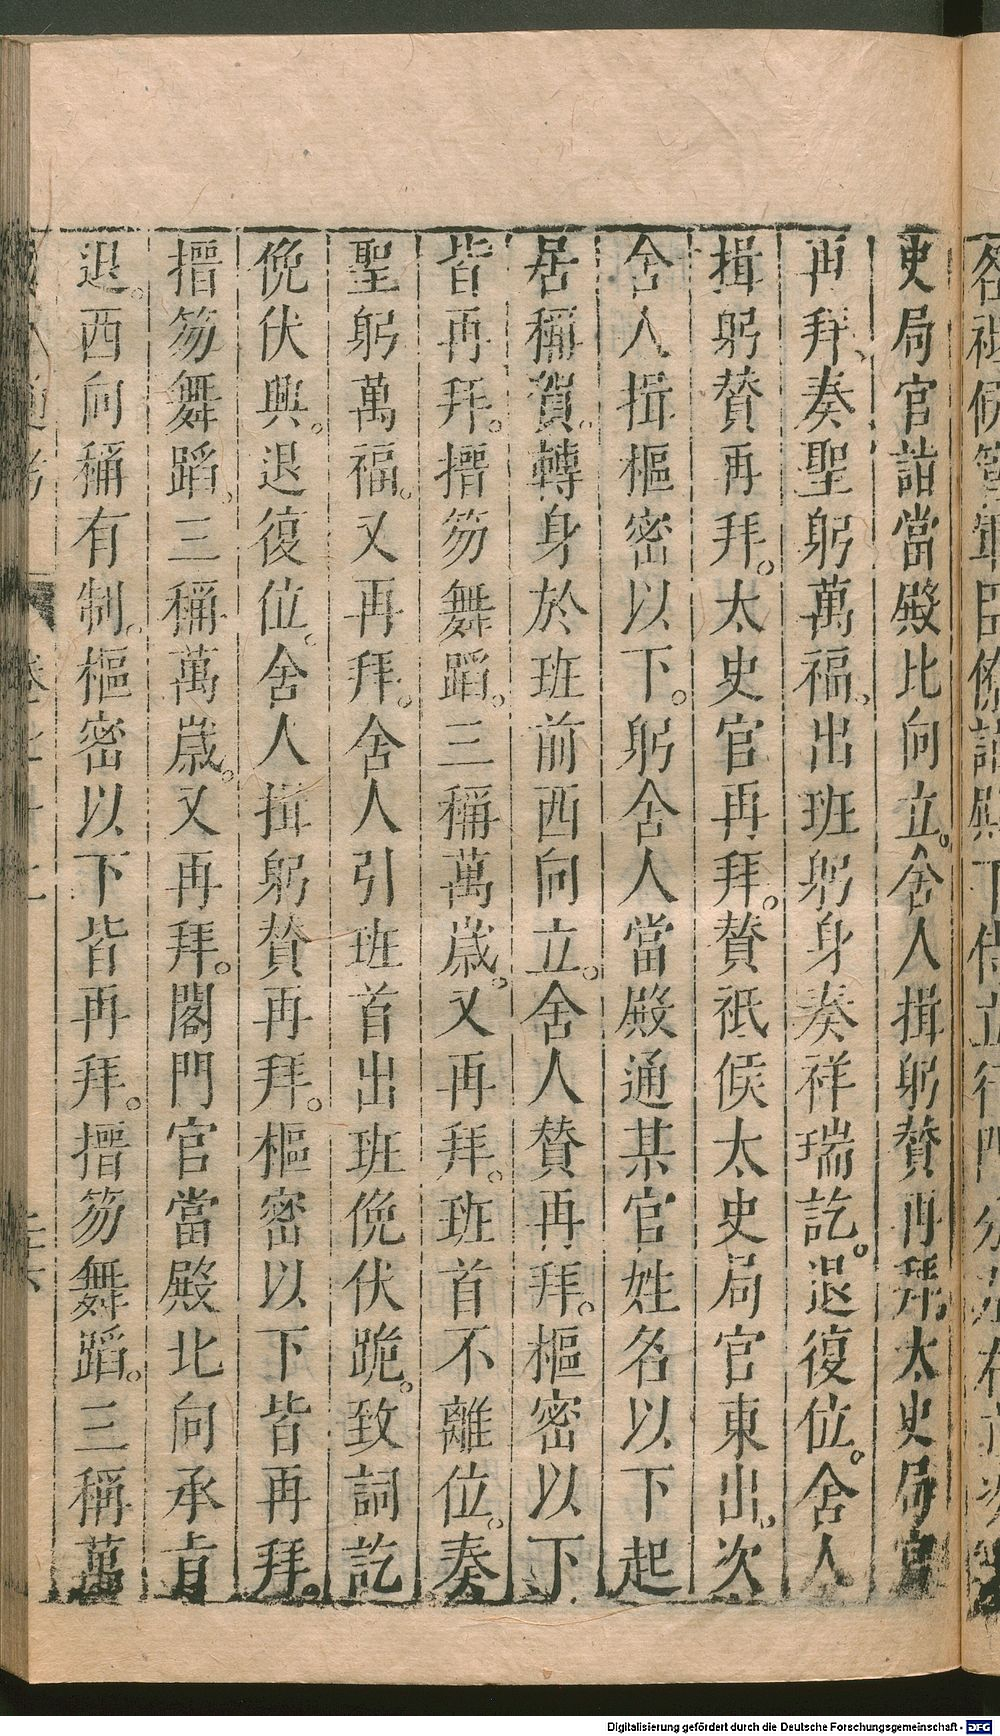 史局官詣當殿北向立。舍人揖躬贊再拜。太史局官
再拜、奏聖躬萬福、出班躬身奏祥瑞訖。退復位。舍人
揖躬贊再拜。太史官再拜。贊祗候太史局官東出、次
舍人揖樞密以下。躬舍人當殿通某官姓名以下起
居稱賀。轉身於班前西向立。舍人贊再拜。樞密以下
皆再拜。搢笏舞蹈。三稱萬歲。又再拜。班首不離位。奏
聖躬萬福。又再拜。舍人引班首出班俛伏跪。致詞訖
俛伏興。退復位。舍人揖躬贊再拜。樞密以下皆再拜。
搢笏舞蹈。三稱萬歲。又再拜。閤門官當殿北向承旨
退。西向稱有制。樞密以下皆再拜。搢笏舞蹈。三稱萬
Digitalisierung gefördert durch die Deutsche Forschungsgemeinschaft - DFG